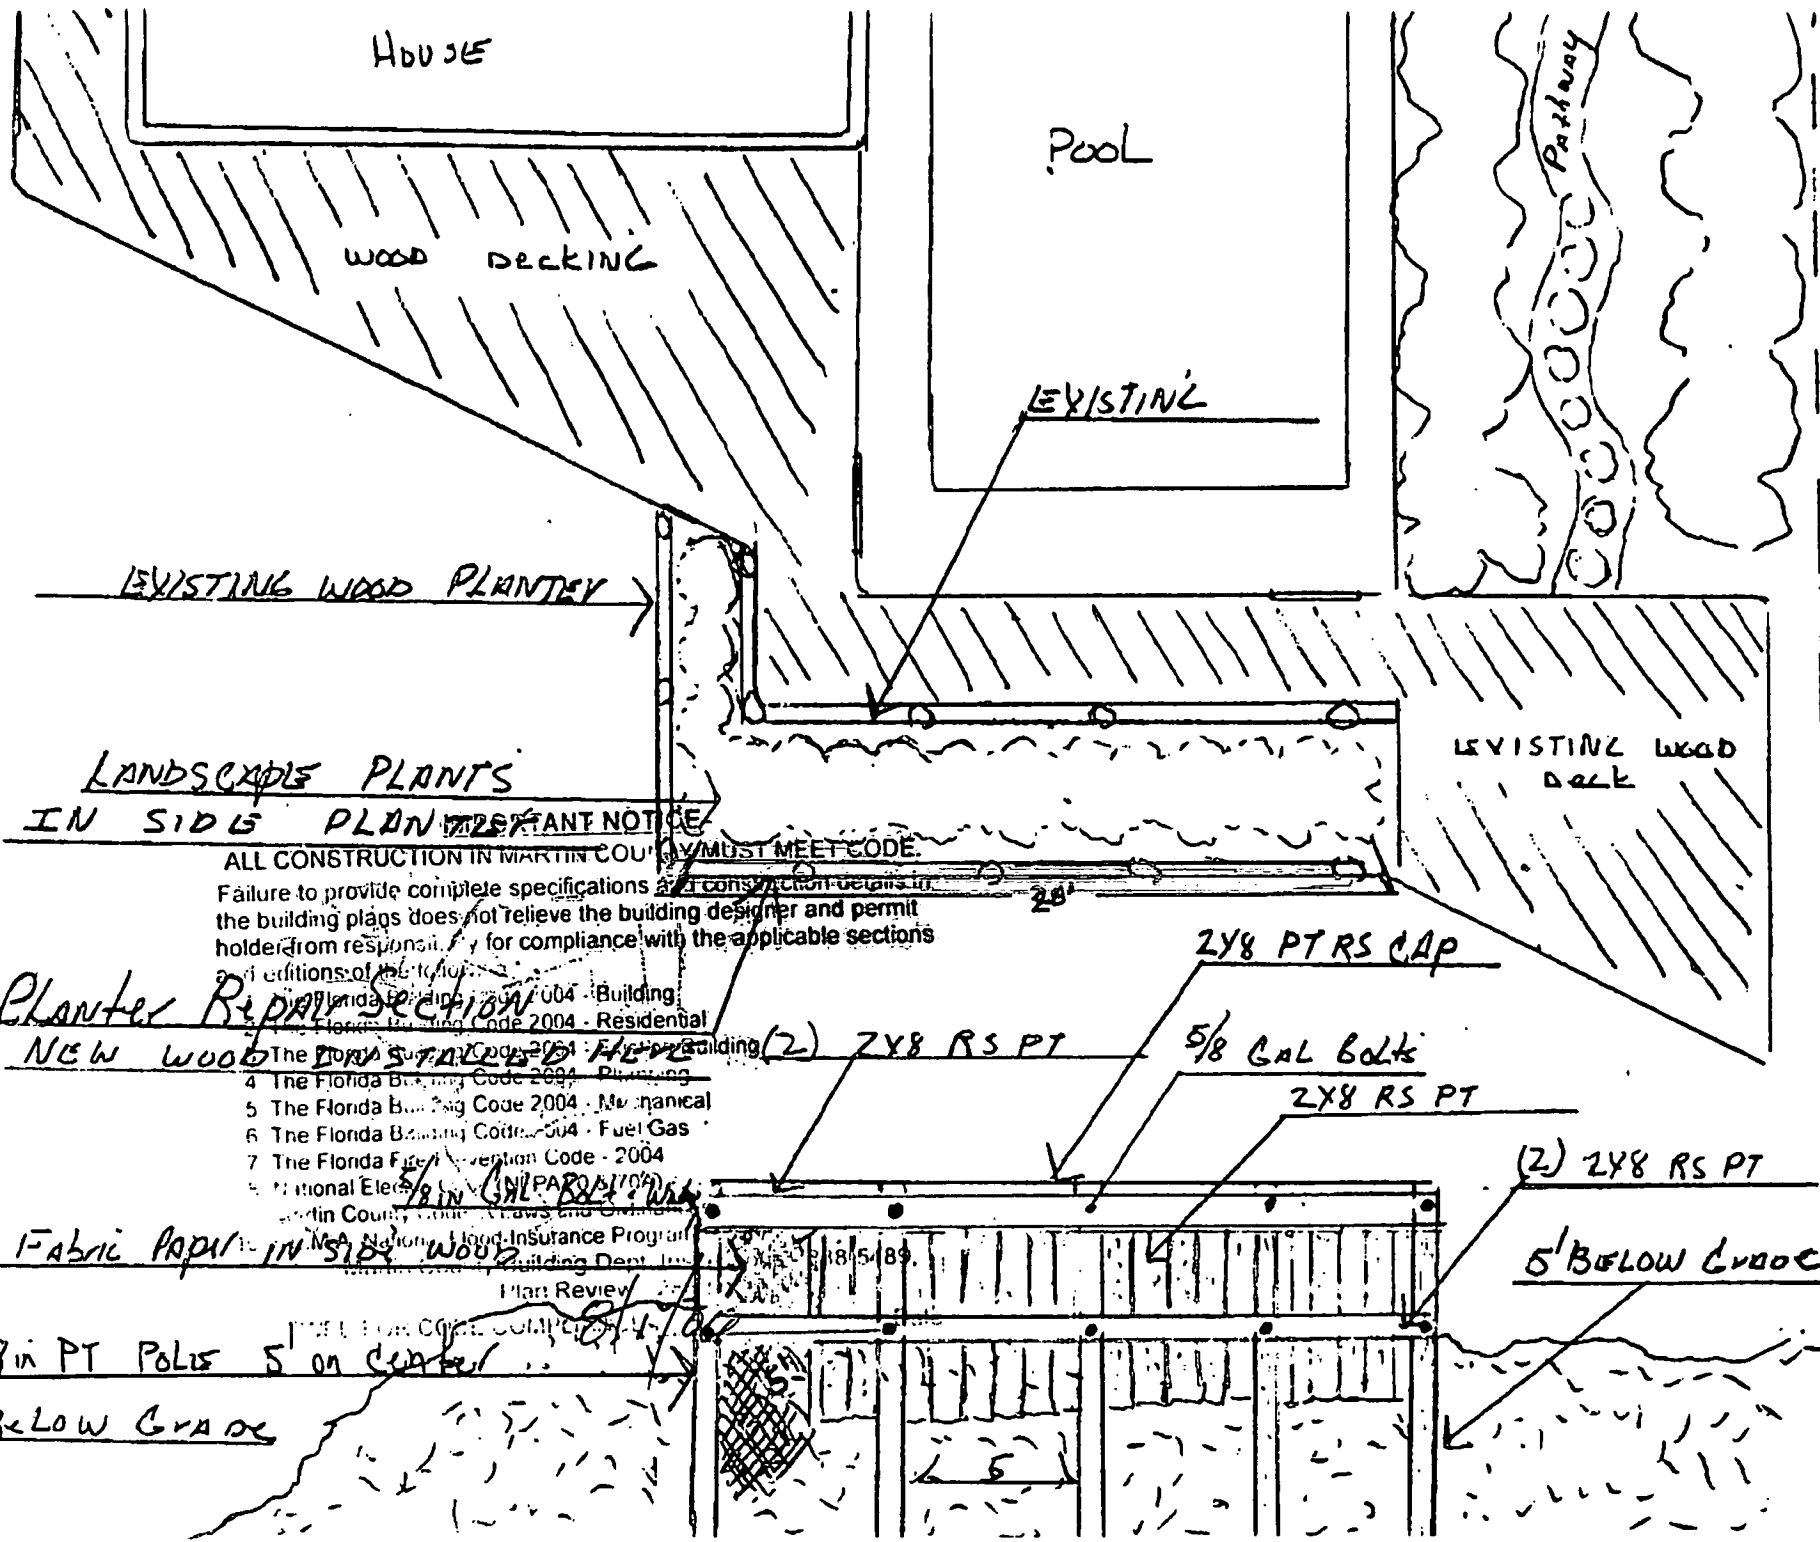 HOUSE
POOL
Pathway
WOOD DECKING
EXISTING
EXISTING WOOD PLANTER
EXISTING WOOD
Deck
LANDSCAPE PLANTS
IN SIDE PLANTER
IMPORTANT NOTICE
ALL CONSTRUCTION IN MARTIN COUNTY MUST MEET CODE.
Failure to provide complete specifications and construction details in
the building plans does not relieve the building designer and permit
holder from responsibility for compliance with the applicable sections
and editions of the
28'
Planter Repair Section
NEW WOOD INSTALLED HERE
The Florida Building Code 2004 - Building
The Florida Building Code 2004 - Residential
The Florida Building Code 2004 - Building
4 The Florida Building Code 2004 - Plumbing
5 The Florida Building Code 2004 - Mechanical
6 The Florida Building Code 2004 - Fuel Gas
7 The Florida Fire Prevention Code - 2004
National
Martin County
National Flood Insurance Program
Building Dept.
Plan Review
2X8 PT RS CAP
(2) 2X8 RS PT
5/8 GAL Bolts
2X8 RS PT
(2) 2X8 RS PT
5/8 IN GAL Bolt
Fabric Paper IN SIDE WOOD
5' BELOW GRADE
in PT POLE 5' on center
BELOW GRADE
5'
5